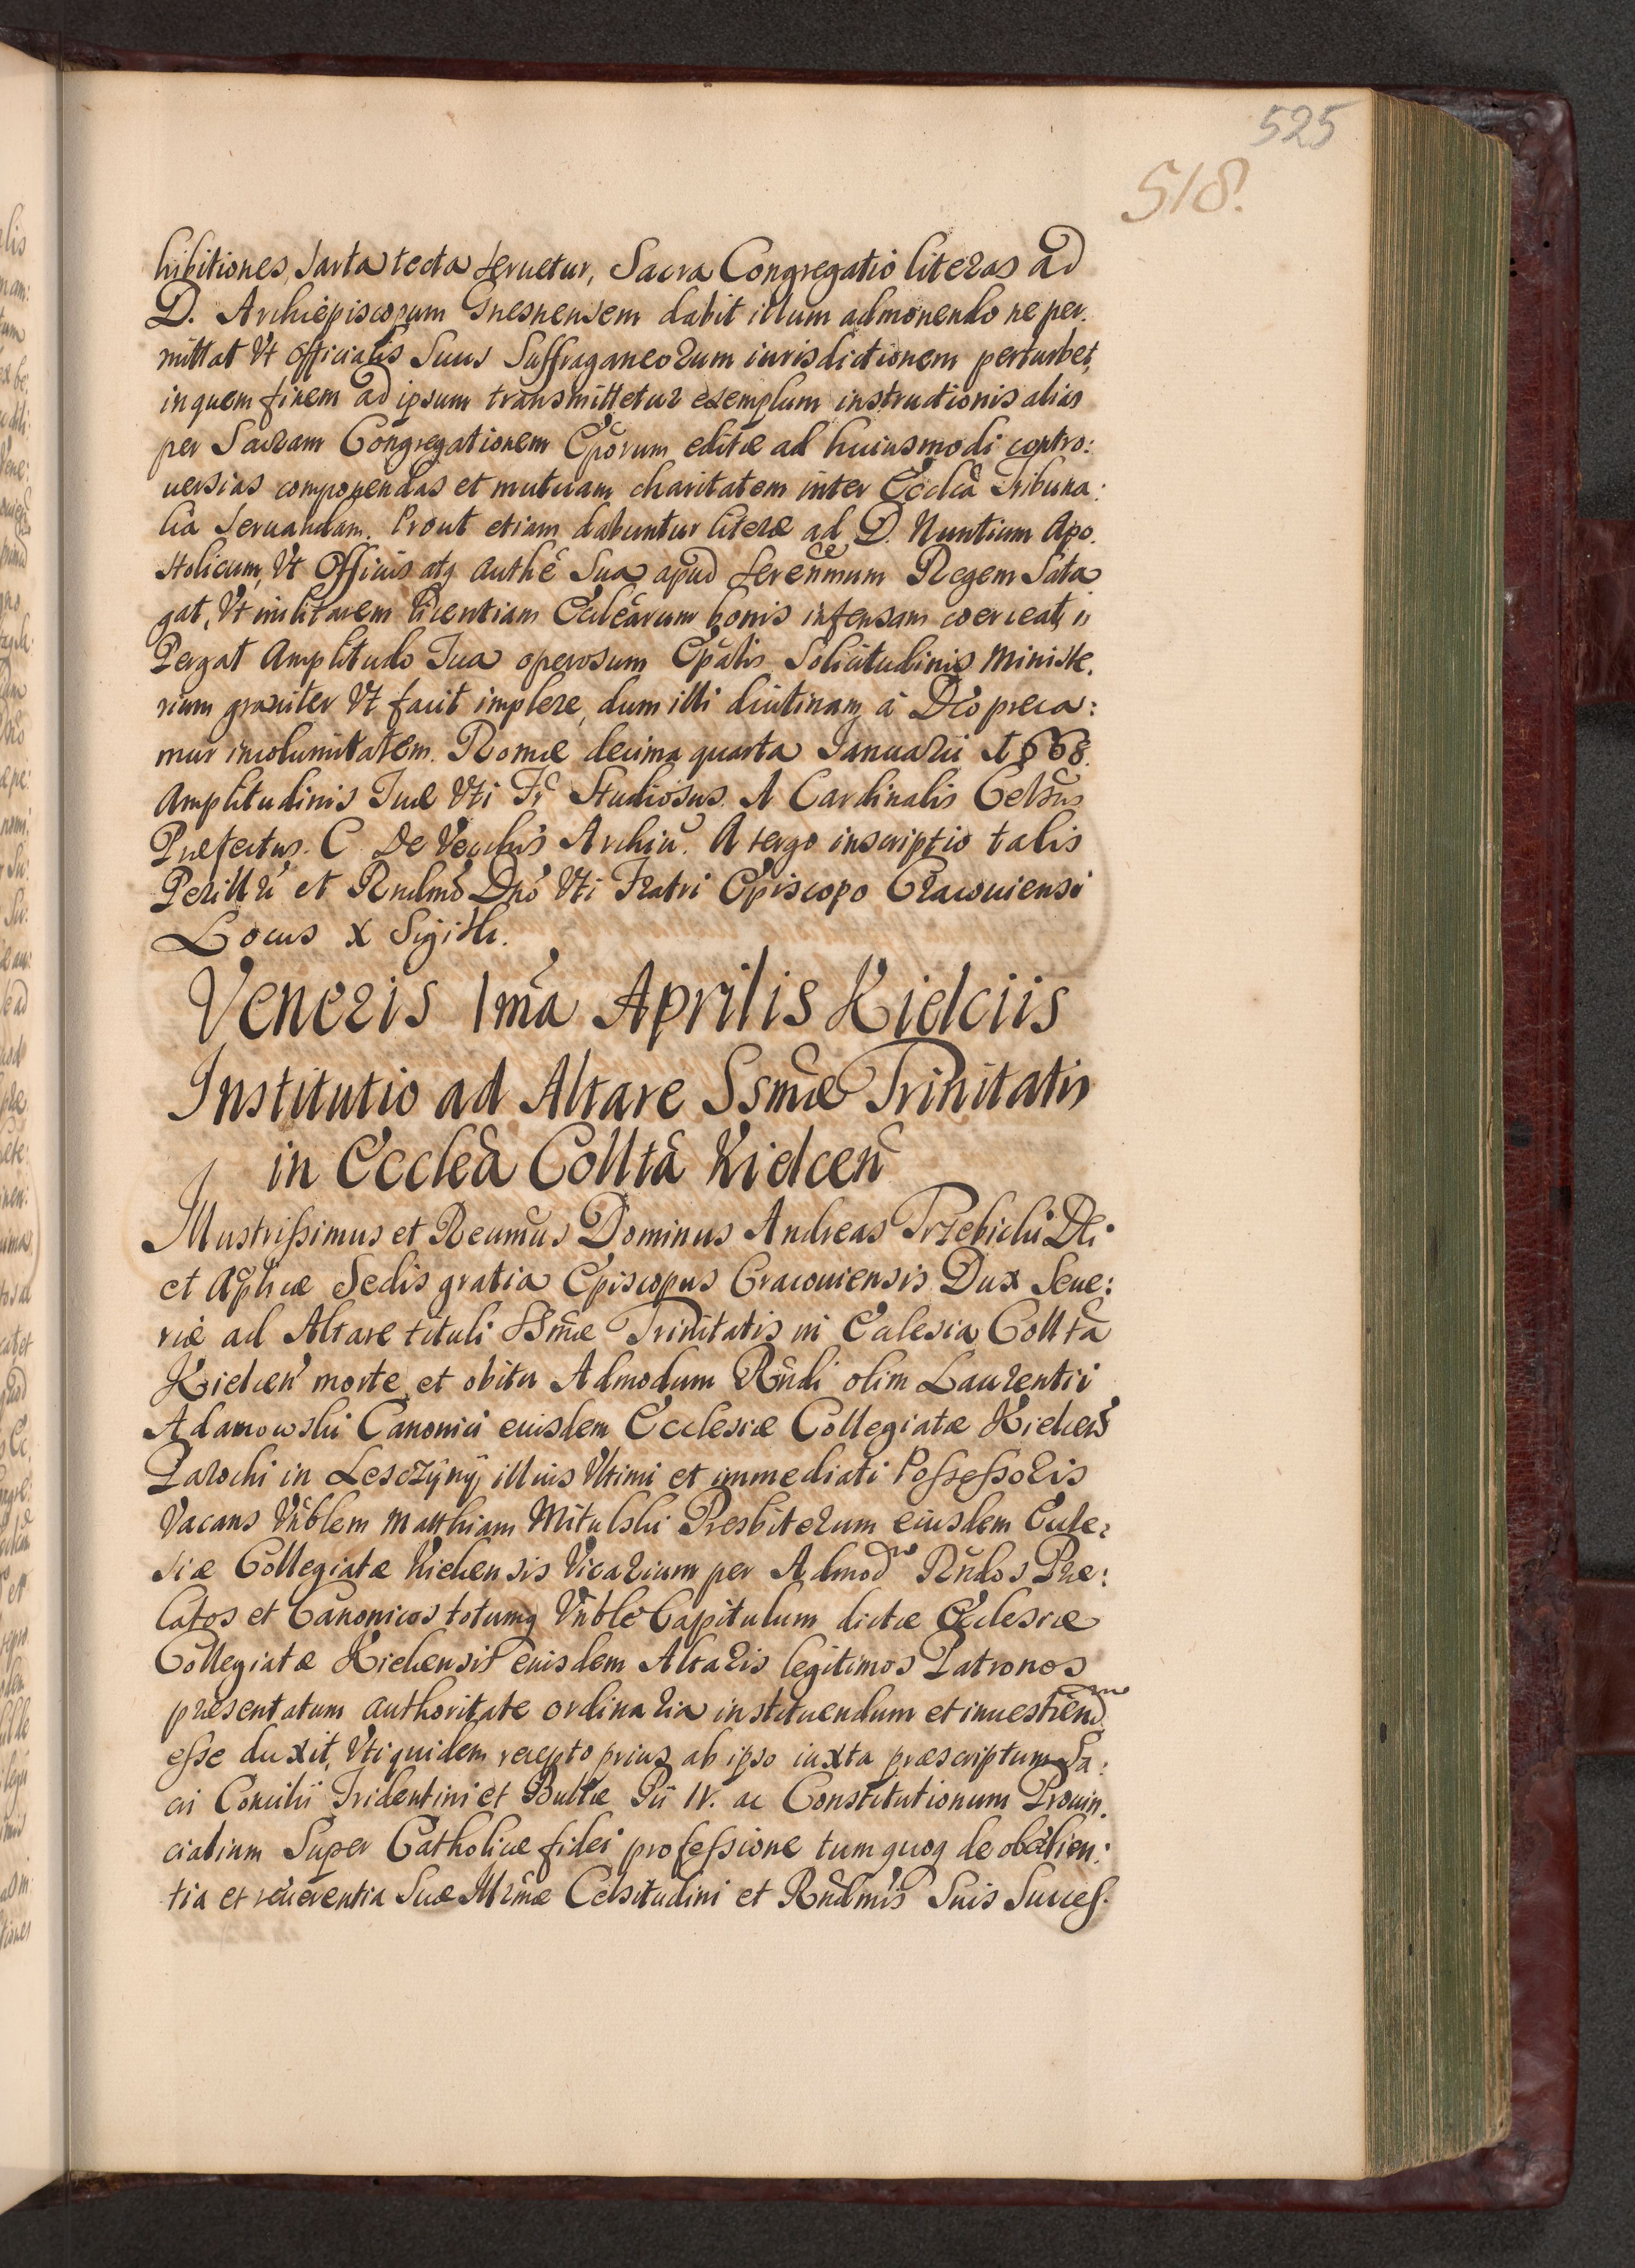 525
518.
hibitiones, sarta tecta seruetur, Sacra Congregatio literas ad
D. Archiepiscopum Gnesnensem dabit illum admonendo ne per.
mittat Vt Officialis Suus Suffraganeorum iurisdictionem perturbet,
in quem finem ad ipsum transmittetur exemplum instructionis alias
per Sacram Congregationem Epõrum editæ ad huiusmodi contro:
uersias componendas et mutuam charitatem inter Ecclã Tribuna:
lia Seruandam. Prout etiam dabuntur literæ ad D. Nuntium Apo.
stolicum, Vt Officiis atq authẽ Sua apud Serenmum Regem Sata
gat, Vt militarem licentiam Eccleãrum bonis infensam coerceat,
Pergat Amplitudo Tua operosum Epalis Solicitudinis Ministe.
rium grauiter Vt facit implere, dum illi diutinam à Deo preca:
mur incolumitatem. Romæ decima quarta Januarii 1668.
Amplitudinis Tuæ Vti Fr̃ Studiosus. A Cardinalis Celsus
Præfectus. C. De Vecchis Archiẽ. A tergo inscriptio talis
Perillri et Rndmõ Dnõ Vti Fratri Episcopo Cracouiensi
Locus x Sigilli.
Veneris 1mã Aprilis Kielciis
Institutio ad Altare Ssmæ Trinitatis
in Eccleã Colltã Kielceñ
Illustrissimus et Reumũs Dominus Andreas Trzebicki Dei
et Aplicæ Sedis gratia Episcopus Cracouiensis Dux Seue:
riæ ad Altare tituli SSmæ Trinitatis in Eclesia Colltã
Kielceñ morte et obitu Admodum Rñdi olim Laurentii
Adamowski Canonici eiusdem Ecclesiæ Collegiatæ Kielceñ
Parochi in Lesczÿnÿ illius Vltimi et immediati Possessoris
Vacans Vñblem Matthiam Mitulski Presbiterum eiusdem Eccle:
siæ Collegiatæ Kielcensis Vicarium per Admod Rñdos Præ:
latos et Canonicos totumq Vñble Capitulum dictæ Ecclesiæ
Collegiatæ Kielcensis eiusdem Altaris legitimos Patronos
præsentatum authoritate ordinaria instituendum et inuestiend
esse duxit, Vti quidem recepto prius ab ipso iuxta præscriptum Sa:
cri Concilii Tridentini et Bullæ Pii IV. ac Constitutionum Prouin.
cialium Super Catholicæ fidei professione tum quoq de obedien:
tia et reuerentia Suæ Illrmæ Celsitudini et Rñdmis Suis Succes.